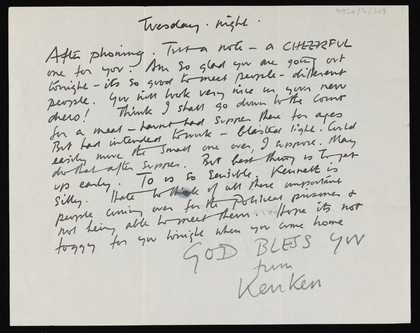 Tuesday. night.
After phoning. Just a note - a CHEERFUL
one for you. Am so glad you are going out
tonight - its so good to meet people - different
people. You will look very nice in your new
dress! Think I shall go down to the Court
for a meal - havnt had supper there for ages
But had intended to work - blasted light. Could
easily move the small one over, I suppose. May
do that after supper. But best thing is to get
up early. To us so sensible. Kenneth is
silly. Hate to think of all these important
people coming over for the Political prisoners &
not being able to meet them. Hope its not
foggy for you tonight when you come home
GOD BLESS YOU
from
KenKen